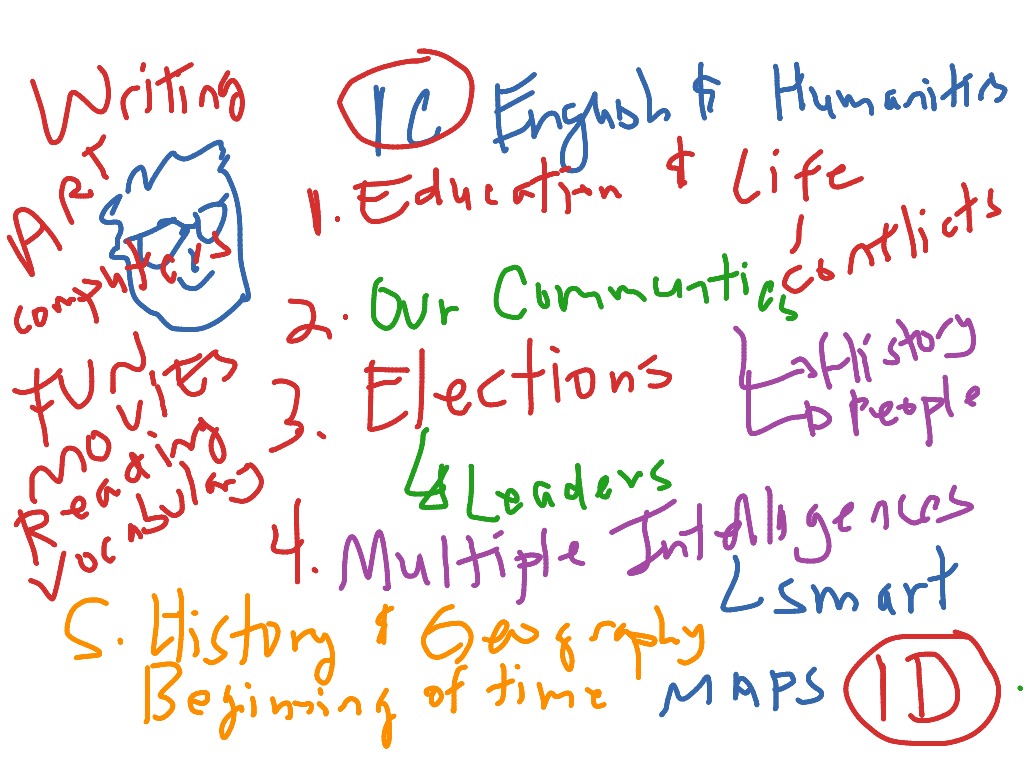 Writing
ART
computers
FUN
movies
Reading
Vocabulary
1C English & Humanitis
1. Education & Life
conflicts
2. Our Communtics
History
People
3. Elections
Leaders
4. Multiple Intelligences
smart
5. History & Geography
Beginning of time MAPS 1D